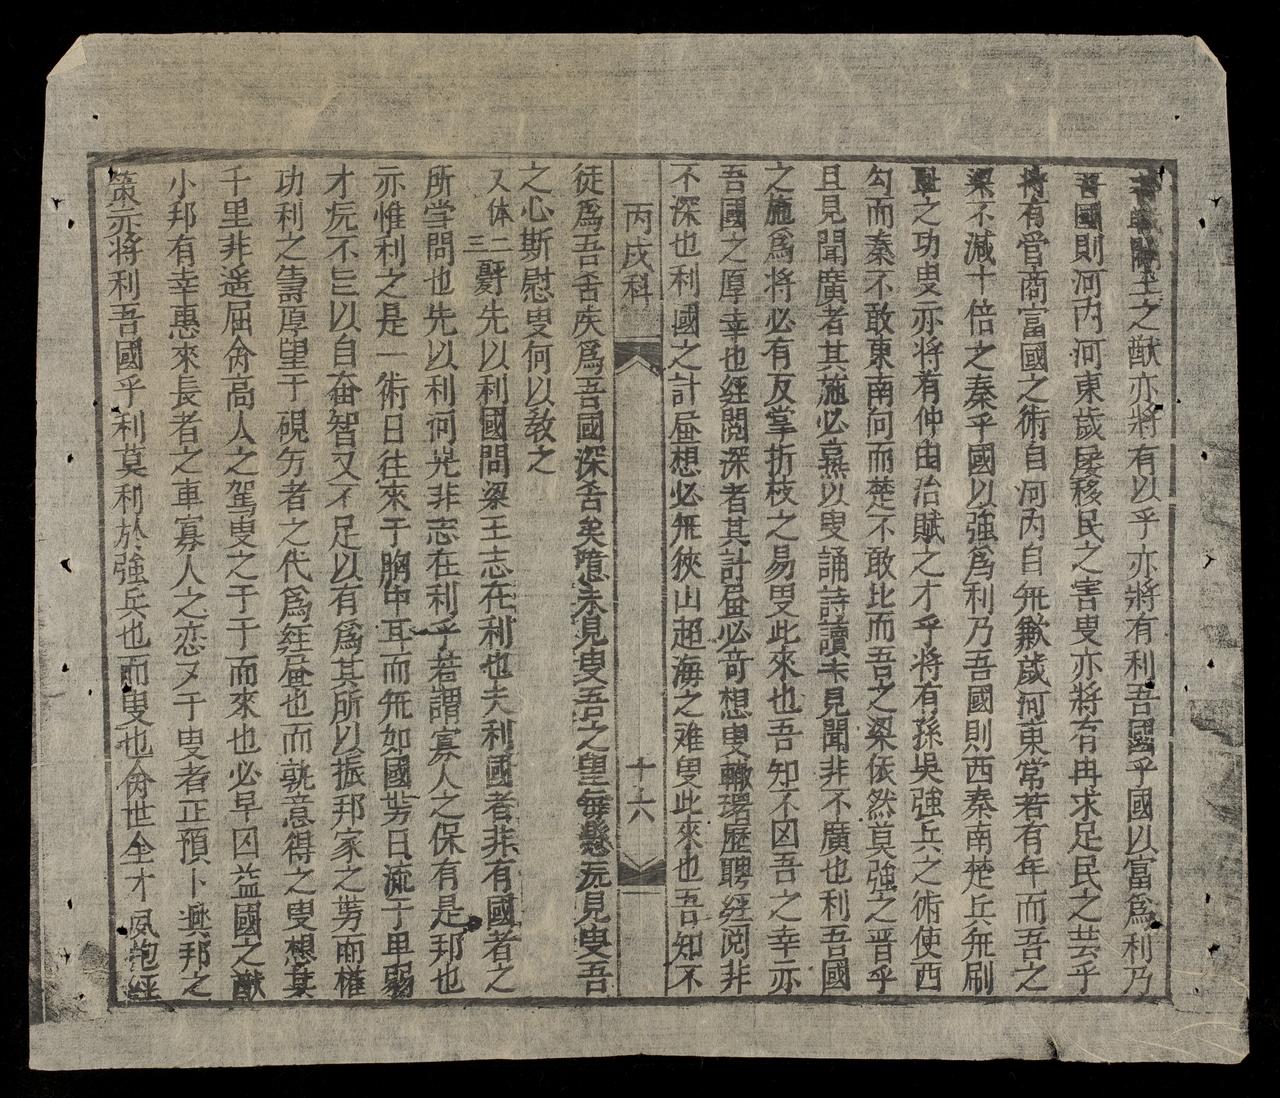 之猷亦將有以乎亦將有利吾國乎國以富爲利乃
吾國則河內河東歲屡移民之害叟亦將有冉求足民之芸乎
將有管商富國之術自河內自無歉歲河東常若有年而吾之
梁不減十倍之秦乎國以強爲利乃吾國則西秦南楚兵無刷
恥之功叟亦將有仲由治賦之才乎將有孫吳強兵之術使西
勾而秦不敢東南向而楚不敢北而吾之梁依然莫強之晋乎
且見聞廣者其施必 以叟誦詩讀 見聞非不廣也利吾國
之施爲將必有反掌折枝之易叟此來也吾知不因吾之幸亦
吾國之厚幸也經閱深者其計 必竒想叟轍環歷聘經閱非
不深也利國之計 想必無挾山超海之难叟此來也吾知不
丙戌科
十六
徒爲吾 矣爲吾國深 矣噫未見叟吾之望每懸 見叟吾
之心斯慰叟何以教之
又体二
三 先以利國問梁王志在利也夫利國者非有國者之
所當問也先以利何 非志在利乎若謂寡人之保有是邦也
亦惟利之是一術日往來于胸中耳而無如國势日流于卑弱
才 不 以自奋智又不足以有爲其所以振邦家之势而權
功利之籌厚望于硯 者之代爲經 也而孰意得之叟想其
千里非遥屈 高人之駕叟之于于而來也必早因益國之猷
小邦有幸惠來長者之車寡人之恋又于叟者正預卜興邦之
策亦将利吾國乎利莫利於強兵也而叟也 世全才夙抱經